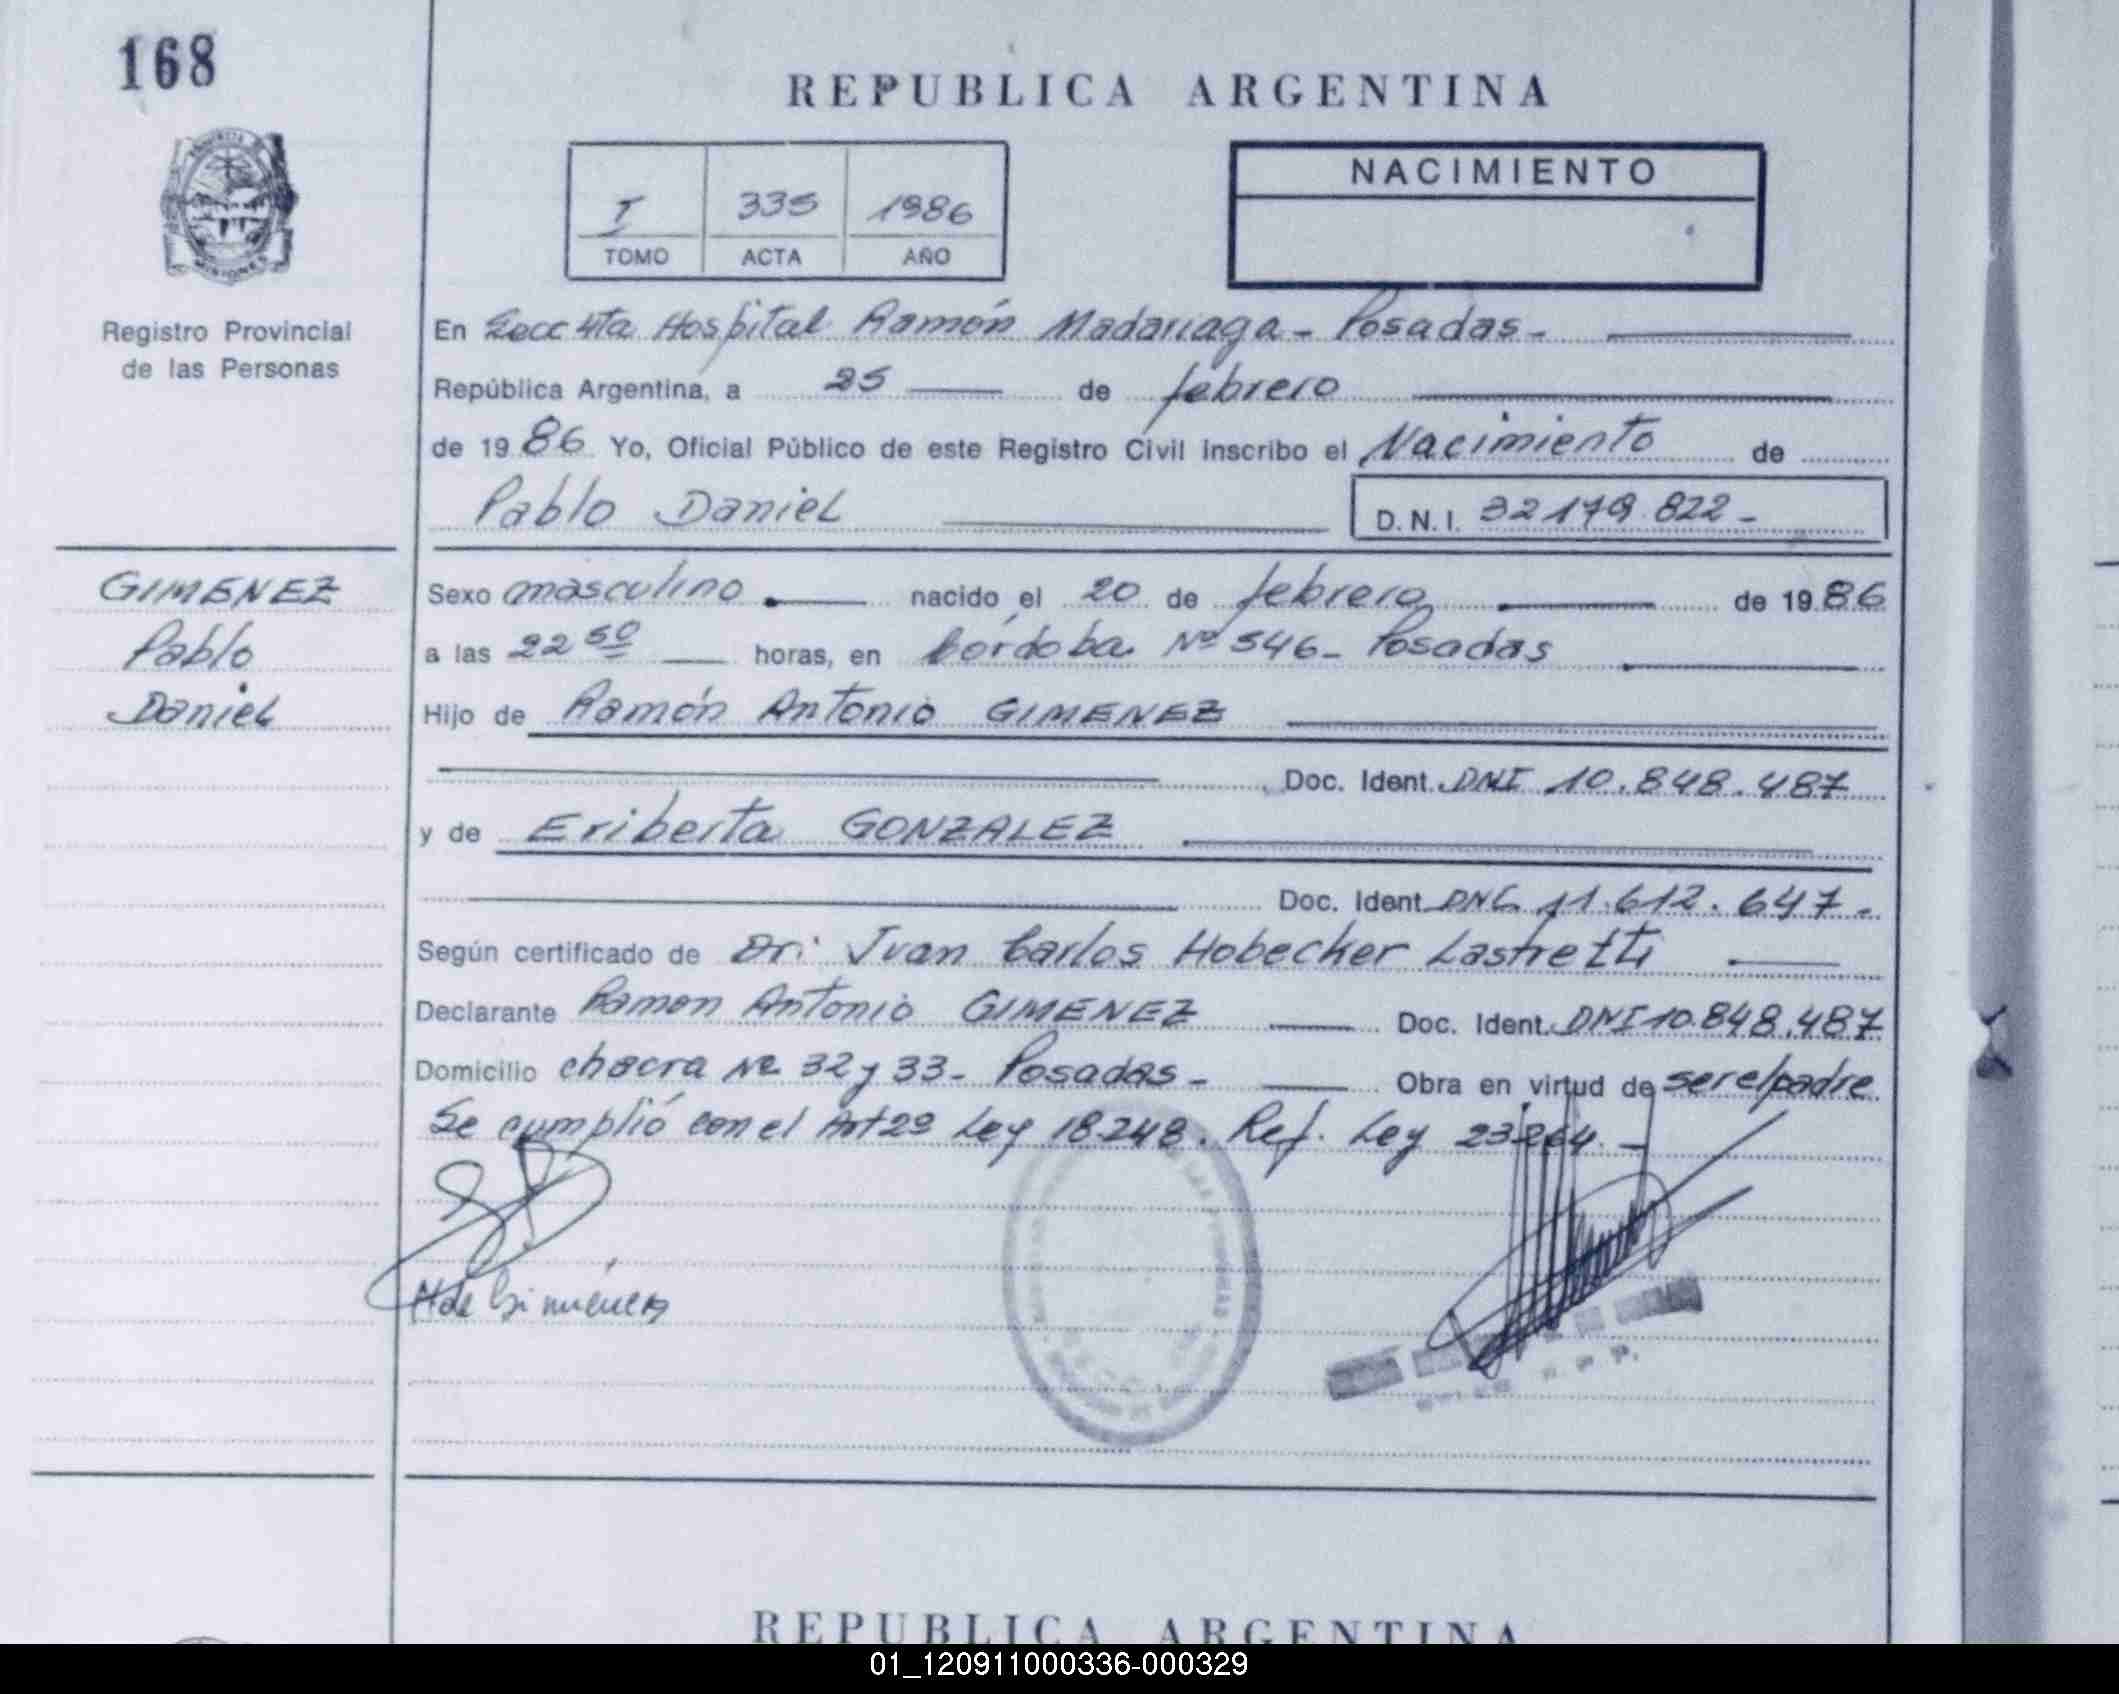 168
REPUBLICA ARGENTINA
I 335 1986
TOMO ACTA AÑO
NACIMIENTO
MISIONES
Registro Provincial
de las Personas
En Secc 4ta Hospital Ramón Madariaga - Posadas -
República Argentina, a 25 de febrero
de 1986 Yo, Oficial Público de este Registro Civil inscribo el Nacimiento de
Pablo Daniel D.N.I. 32179.822 -
GIMENEZ
Pablo
Daniel
Sexo masculino nacido el 20 de febrero de 1986
a las 22 50 horas, en Córdoba Nº 546 - Posadas
Hijo de Ramón Antonio GIMENEZ
Doc. Ident. DNI 10.848.487
y de Eriberta GONZALEZ
Doc. Ident. DNI 11.612.647 -
Según certificado de Dr: Juan Carlos Hobecker Lastretti
Declarante Ramon Antonio GIMENEZ Doc. Ident. DNI 10.848.487
Domicilio chacra Nº 32 y 33 - Posadas - Obra en virtud de ser el padre
Se cumplió con el Art 2º Ley 18.248. Ref. Ley 23264 -
REPUBLICA ARGENTINA
01_120911000336-000329